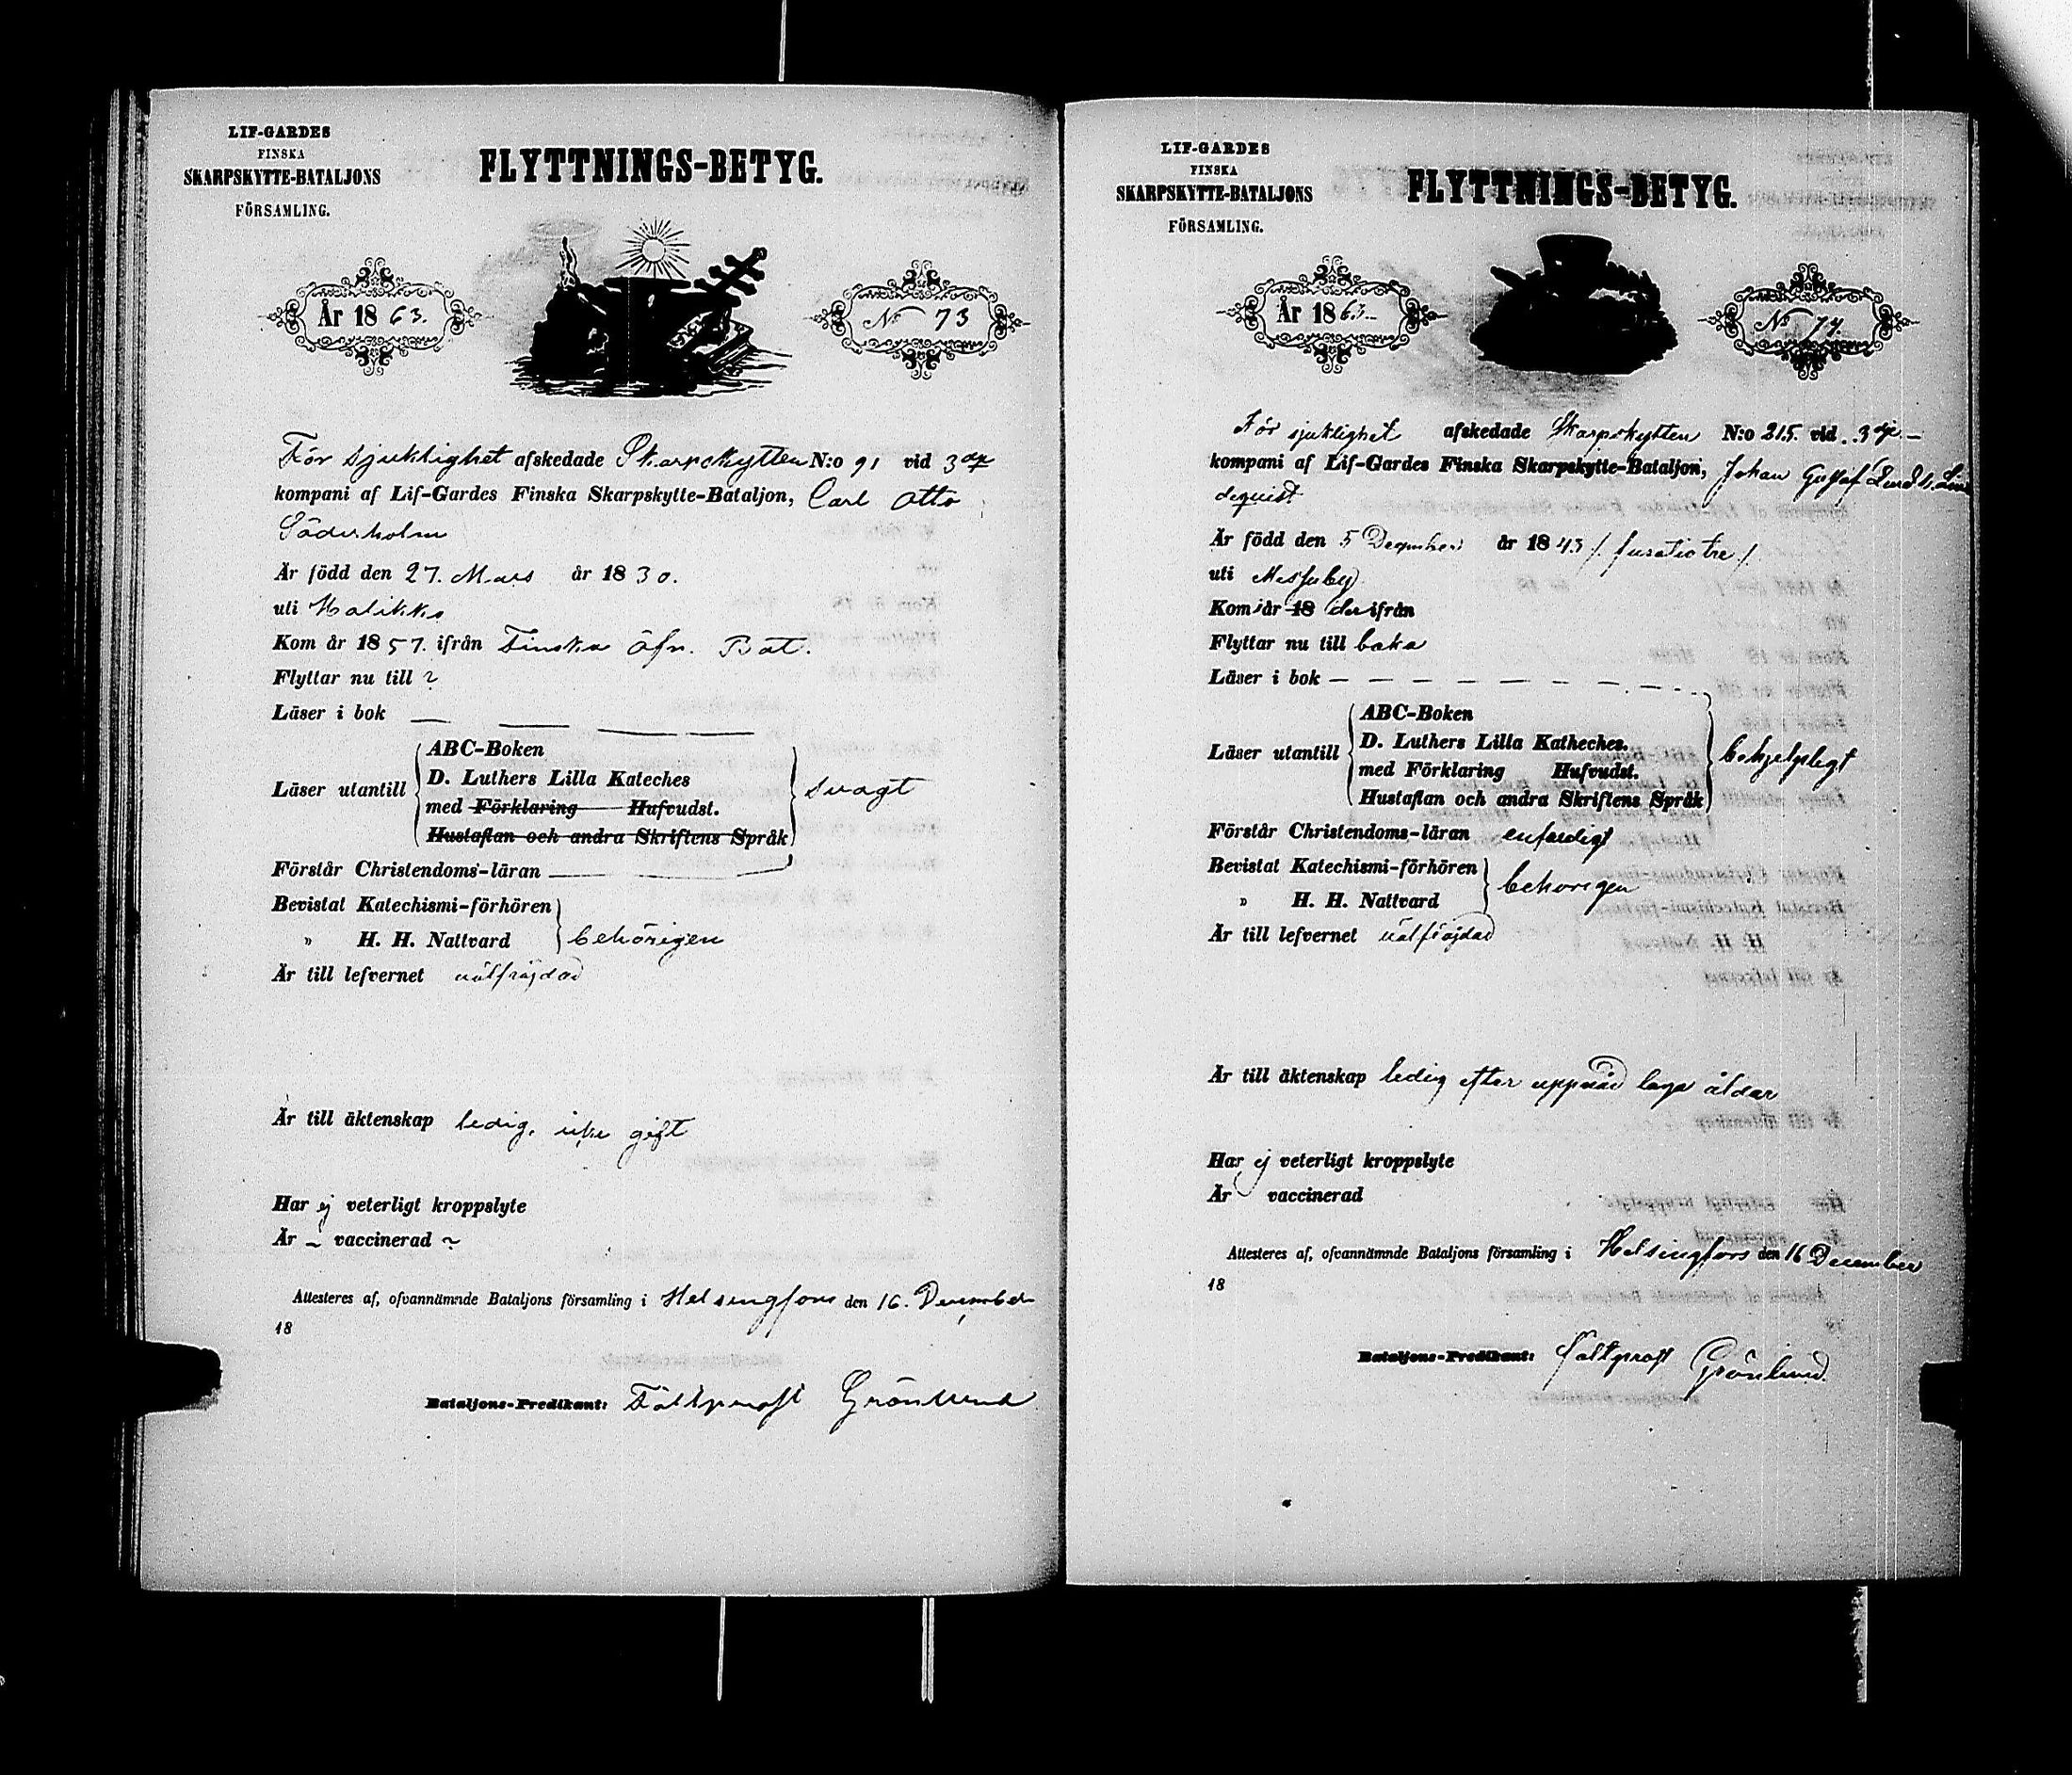 LIF-GARDES
FINSKA
SKARPSKYTTE-BATALJONS
FÖRSAMLING.
FLYTTNINGS-BETYG.
År 1863.
No 73
För sjuklighet afskedade Skarpskytten N:o 91 vid 3dje
kompani af Lif-Gardes Finska Skarpskytte-Bataljon, Carl Otto
Söderholm
Är född den 27. Mars år 1830.
uti Halikko
Kom år 1857. ifrån Finska Öfn. Bat.
Flyttar nu till ?
Läser i bok — — — —
Läser utantill
ABC-Boken
D. Luthers Lilla Kateches
med Förklaring Hufvudst.
Hustaflan och andra Skriftens Språk
svagt
Förstår Christendoms-läran
Bevistat Katechismi-förhören
" H. H. Nattvard
behörigen
Är till lefvernet välfräjdad
Är till äktenskap ledig, icke gift
Har ej veterligt kroppslyte
Är – vaccinerad ~
Attesteres af, ofvannämnde Bataljons församling i Helsingfors den 16. December
18
Bataljons-Predikant: Fältprost Grönlund
LIF-GARDES
FINSKA
SKARPSKYTTE-BATALJONS
FÖRSAMLING.
FLYTTNINGS-BETYG.
År 1863
No 74.
För sjuklighet afskedade Skarpskytten N:o 215. vid 3dje
kompani af Lif-Gardes Finska Skarpskytte-Bataljon, Johan Gustaf Lin
dequist
Är född den 5 December år 1843 /. furatiotre /.
uti Messuby
Kom i år 18 der ifrån
Flyttar nu till baka
Läser i bok — — — — — —
Läser utantill
ABC-Boken
D. Luthers Lilla Katheches.
med Förklaring Hufvudst.
Hustaflan och andra Skriftens Språk
behjelpligt
Förstår Christendoms-läran enfaldigt
Bevistat Katechismi-förhören
" H. H. Nattvard
behörigen
Är till lefvernet välfräjdad
Är till äktenskap ledig efter uppnåd laga ålder
Har ej veterligt kroppslyte
Är vaccinerad
Attesteres af, ofvannämnde Bataljons församling i Helsingfors den 16 December
18
Bataljons-Predikant: Fältprost Grönlund.